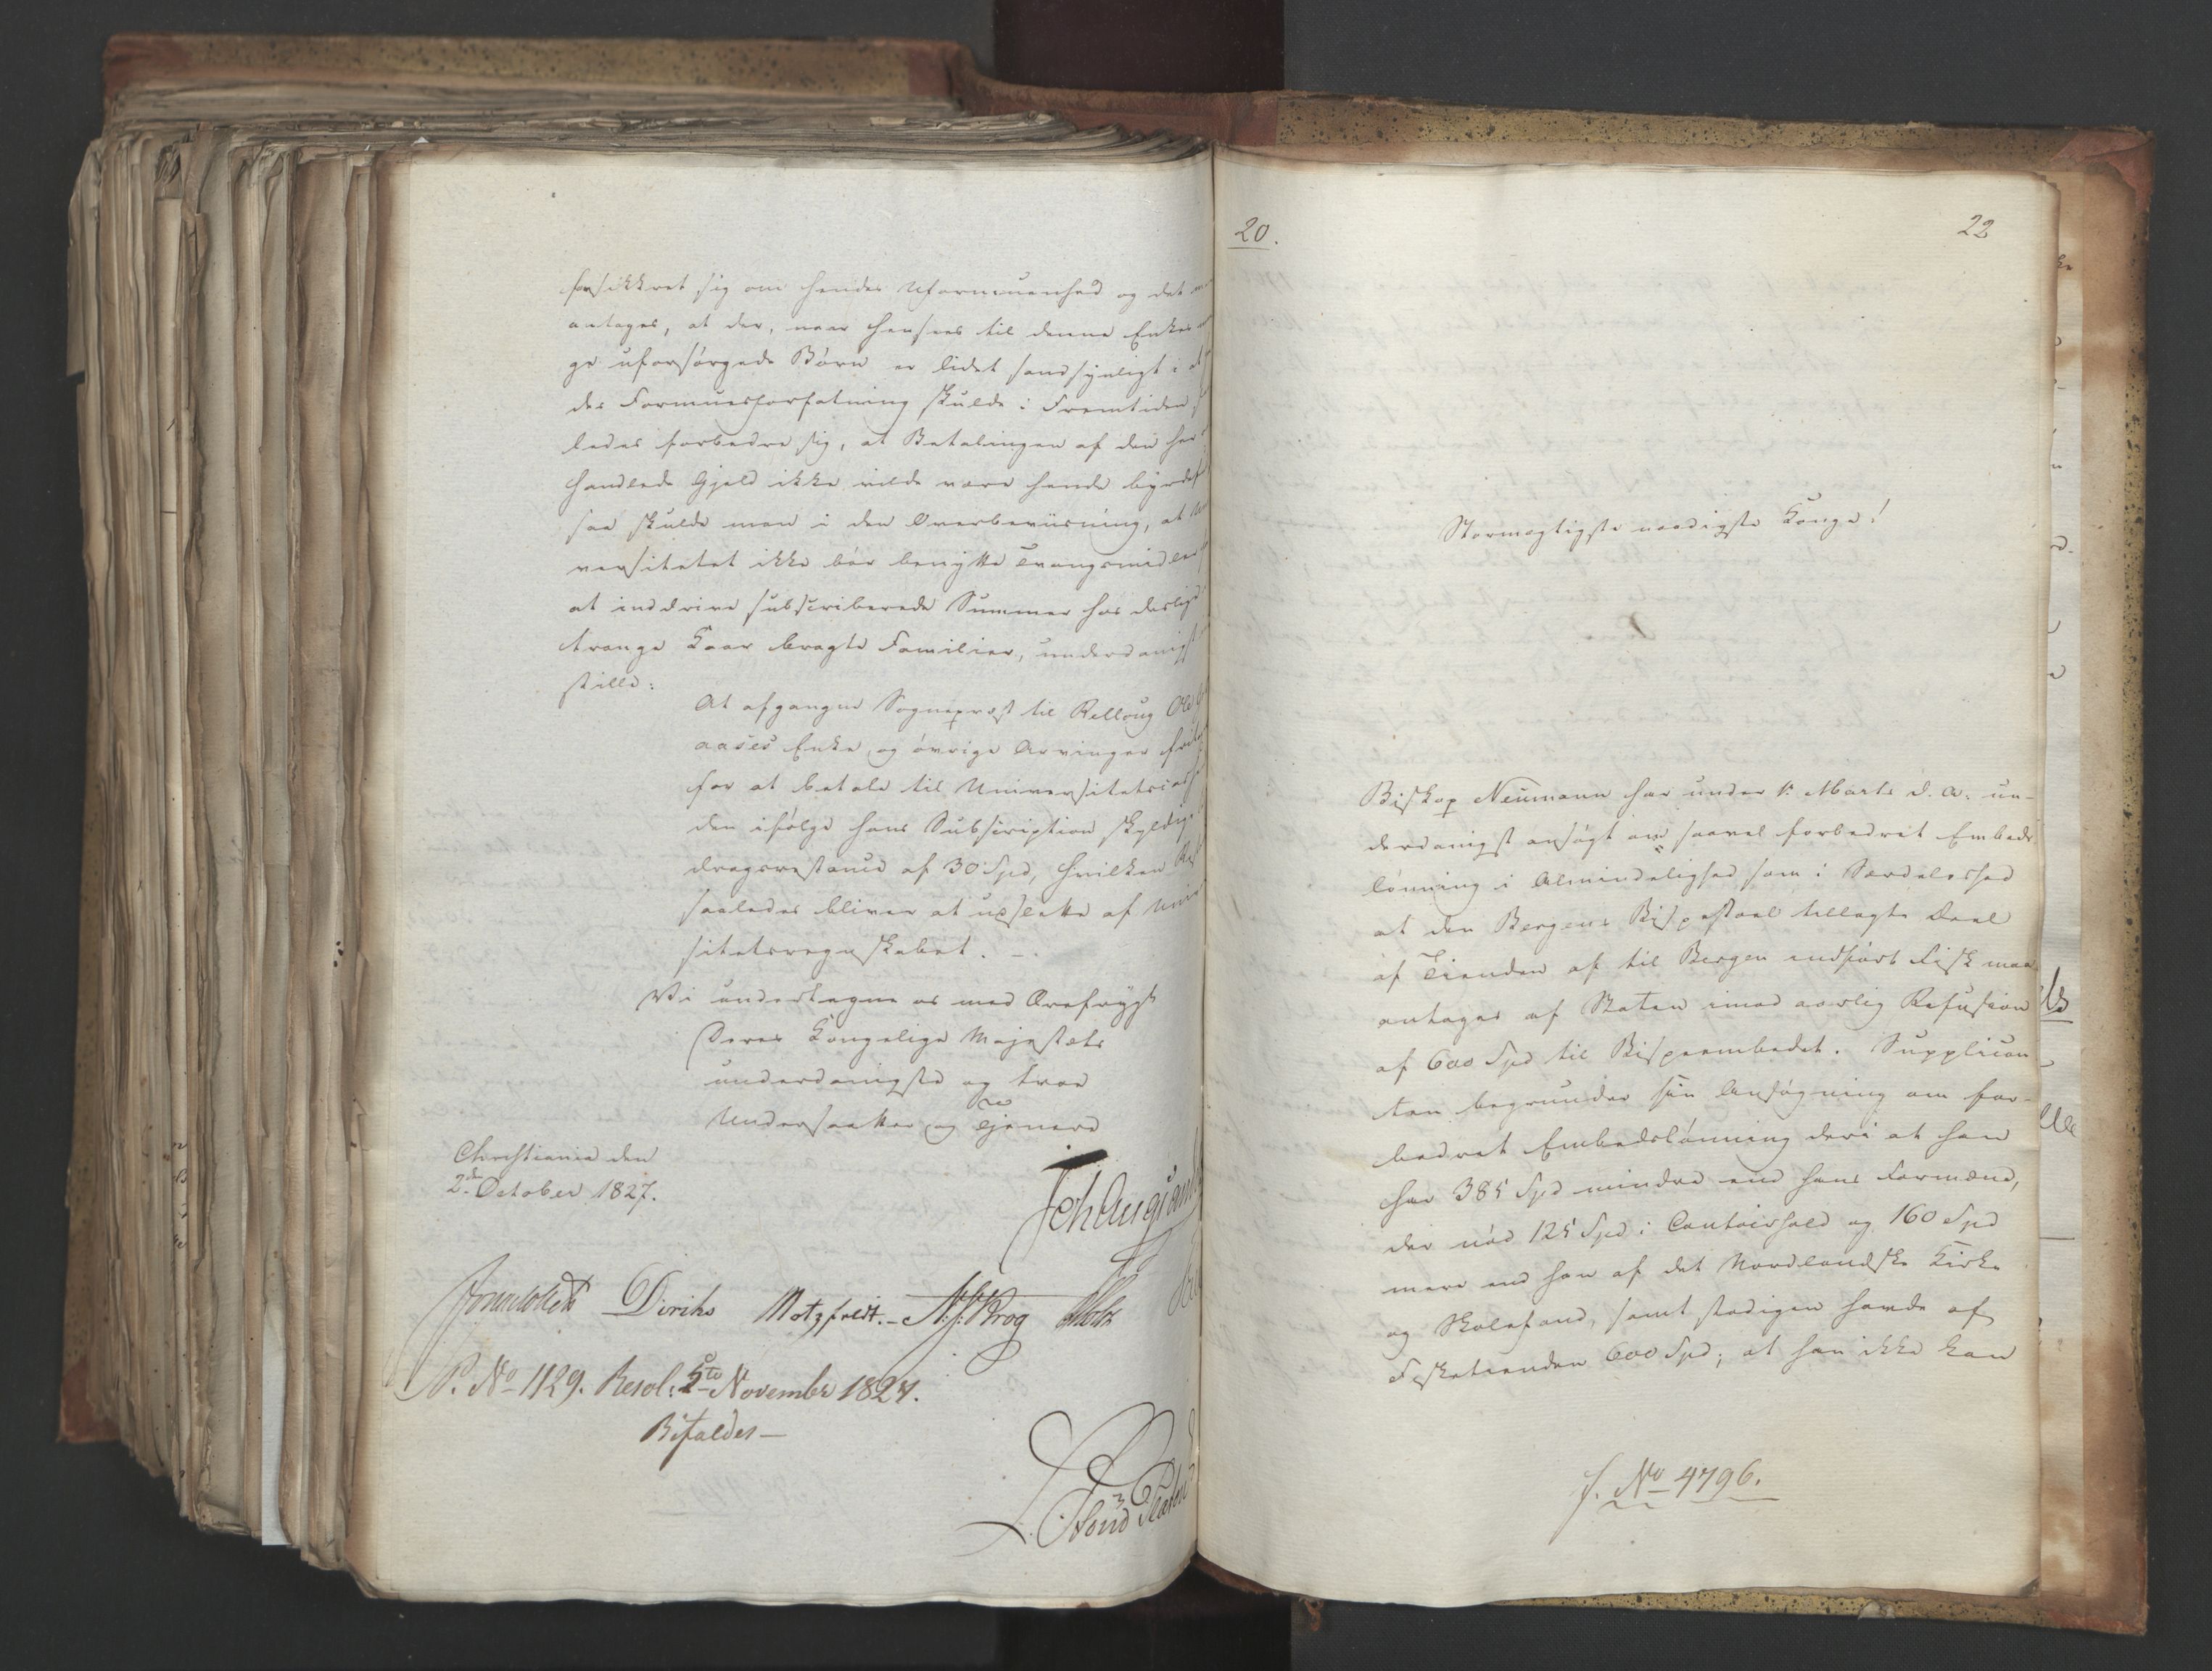 forsikkret sig om hendes Uformuenhed og det
antages, at der, naar hensees til denne Enkes
ge uforsørgede Børn er lidet sandsynligt i at
des Formuesforfatning skulde i Fremtiden
ledes forbedre sig, at Betalingen af den her
handlede Gjeld ikke vilde være hende byrdef
saa skulde man i den Overbeviisning, at
versitetet ikke bør benytte Tvangsmidler
at inddrive subscriberede Summer hos deslige i
trange Kaar bragte Familier, underdanigst
stille:
At afgangne Sognepræst til Rellong Ole
aases Enke og øvrige Arvinger frit
for at betale til Universitetscass
den ifølge hans Subscription skyldige
dragsrestance af 30 Spd, hvilken
saaledes bliver at udslette af Univ
sitetsregnskabet. -
Vi undertegne os med Ærefrygt
Deres Kongelige Majestæts
underdanigste og troe
Undersaatter og Tjenere
Christiania den
2den October 1827.
Diriks Motzfeldt. N. J. Krog Holst
P. No 1129. Resol. 5te November 1827.
Bifaldes—
20.
22
Stormægtigste naadigste Konge!
Biskop Neumann har under 1. Marts d. A. un-
derdanigst ansøgt om saavel forbedret Embeds
lønning i Almindelighed som i Særdeleshed
at den Bergens Bispestoel tillagte Deel
af Tienden af til Bergen indført Fisk maa
antages af Staten imod aarlig Refusion
af 600 Spd til Bispeembedet. Supplican
ten begrunder sin Ansøgning om for-
bedret Embedslønning deri at han
har 385 Spd mindre end hans Formænd,
der nød 125 Spd i Contoirhold og 160 Spd
mere end han af det Nordlandske Kirke
og Skolefond, samt stedigen havde af
Fisketienden 600 Spd; at han ikke kan
f. No 4796.